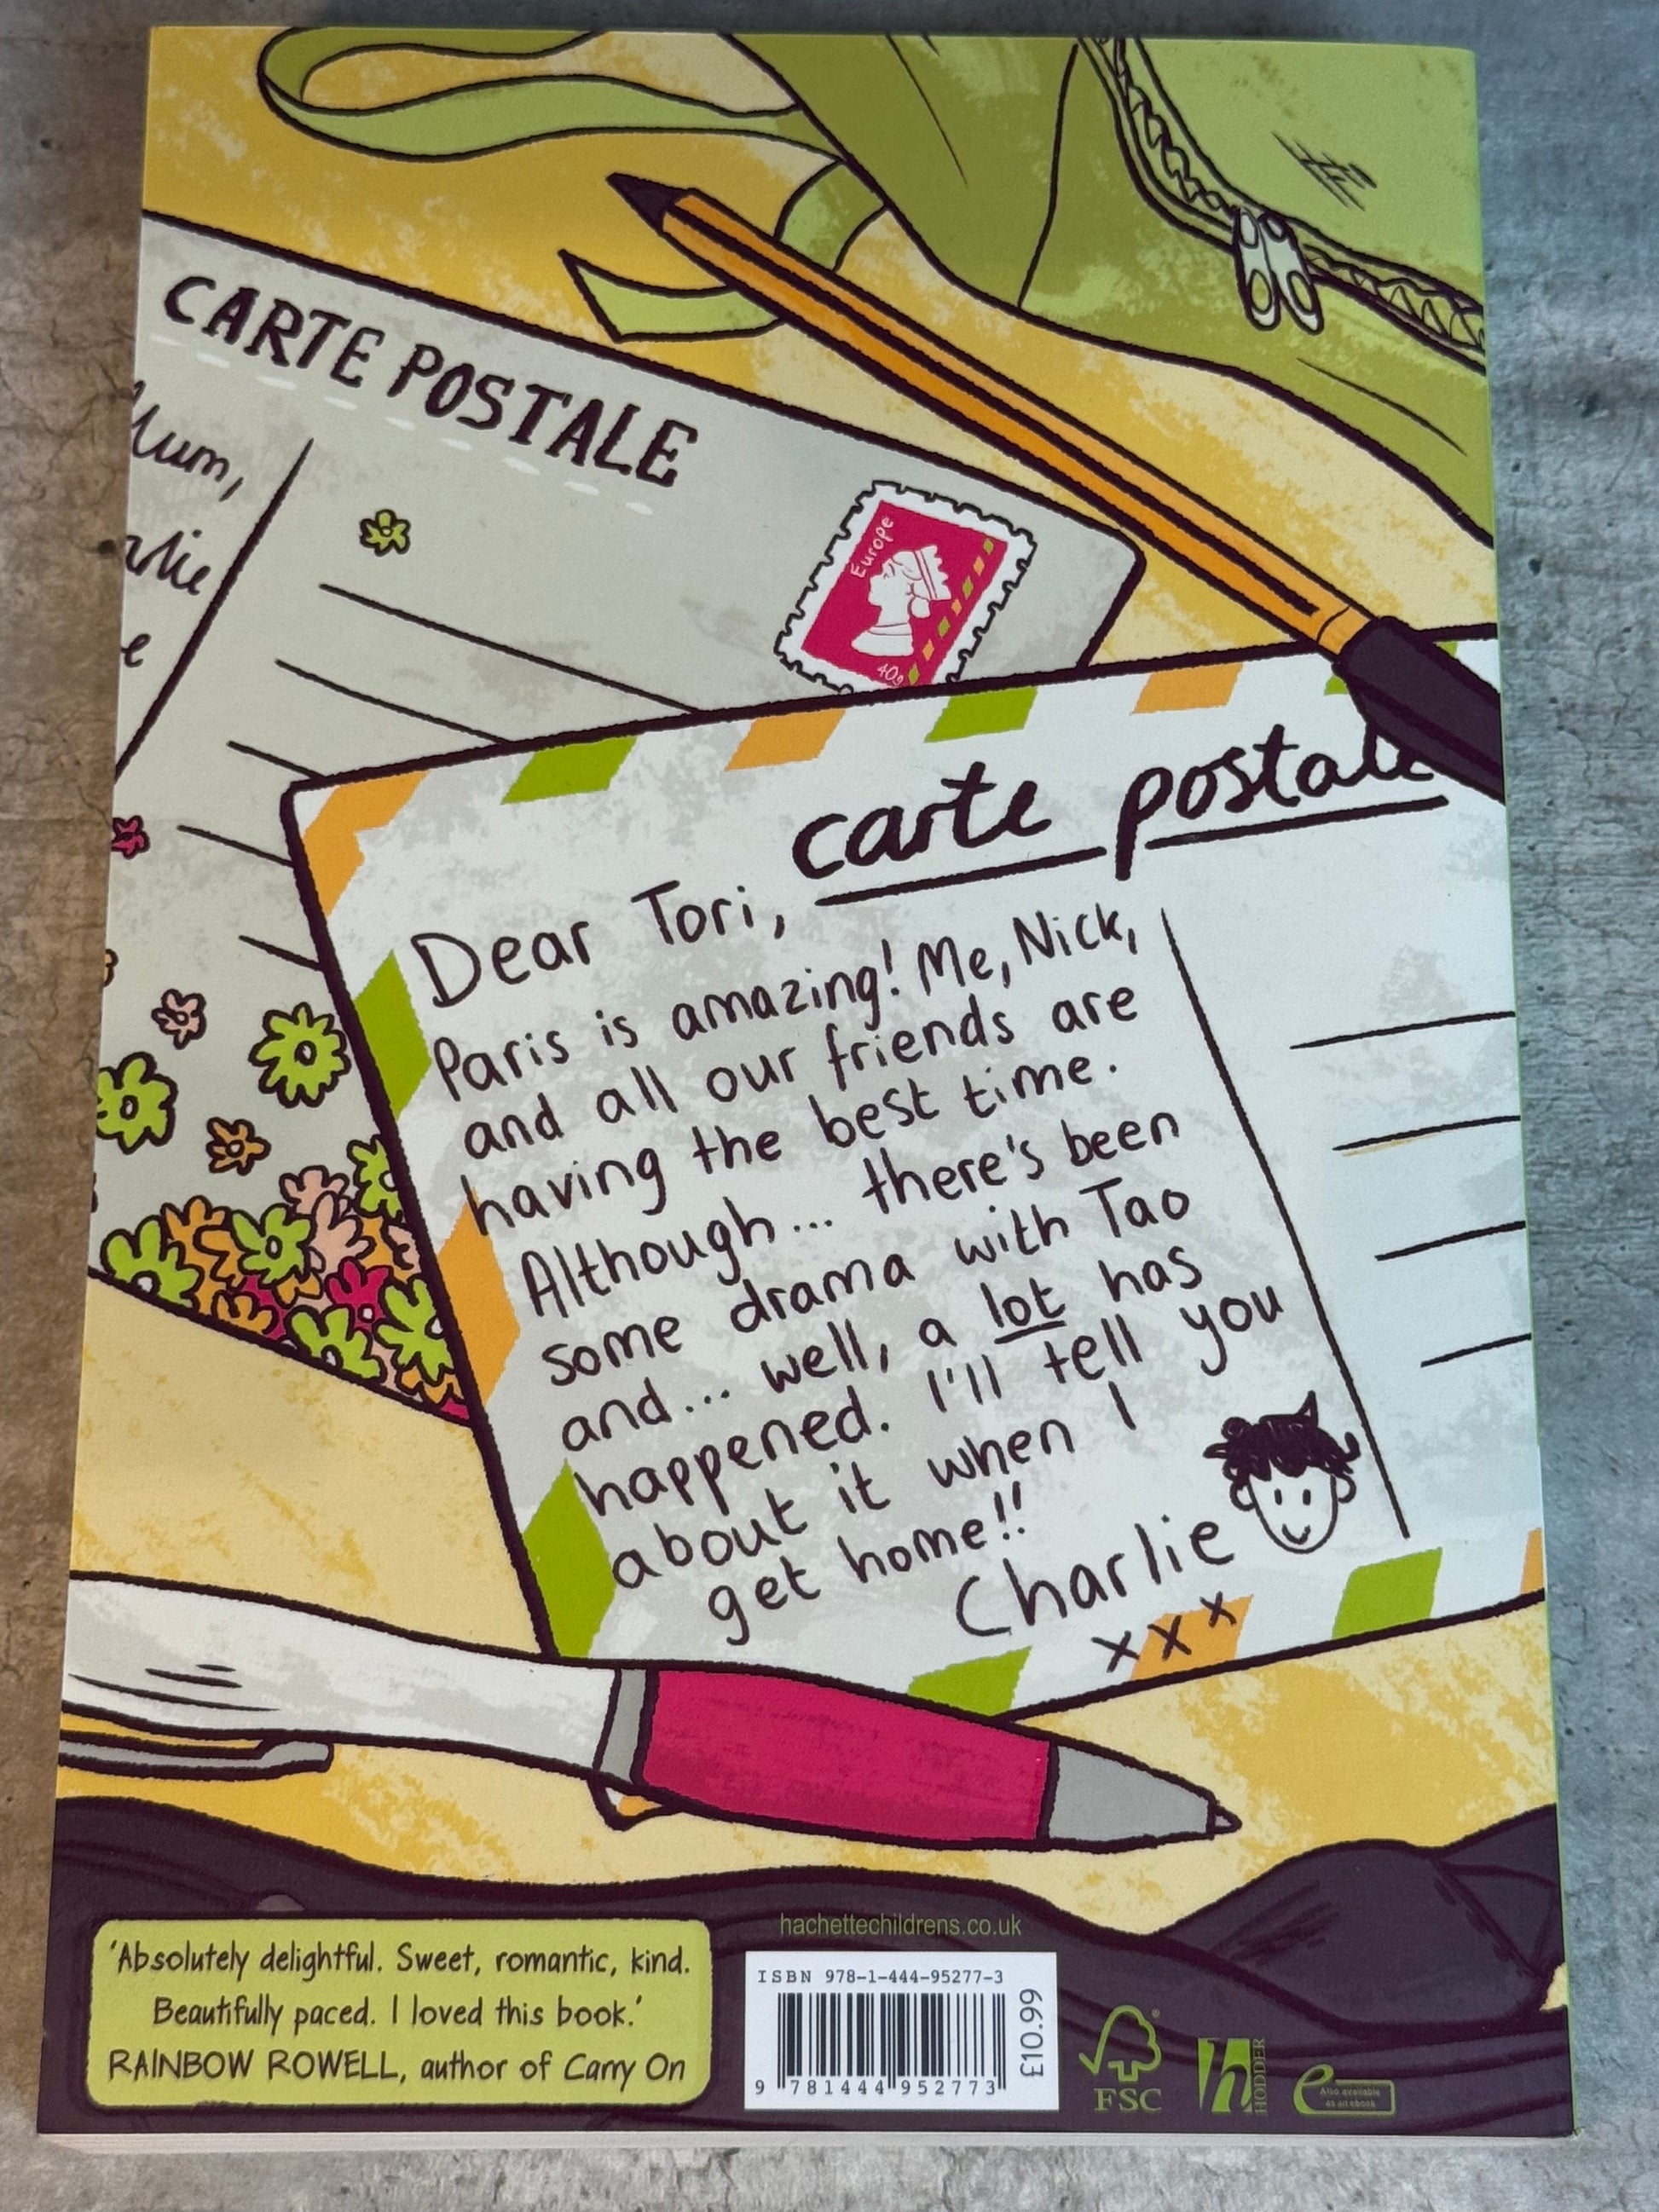 CARTE POSTALE
Europe
carte postale
Dear Tori,
Paris is amazing! Me, Nick,
and all our friends are
having the best time.
Although... there's been
some drama with Tao
and... well, a lot has
happened. I'll tell you
about it when I
get home!!
Charlie
x x x
hachettechildrens.co.uk
'Absolutely delightful. Sweet, romantic, kind.
Beautifully paced. I loved this book.'
RAINBOW ROWELL, author of Carry On
ISBN 978-1-444-95277-3
9 781444 952773
£10.99
FSC
h HODDER
e Also available
as an ebook